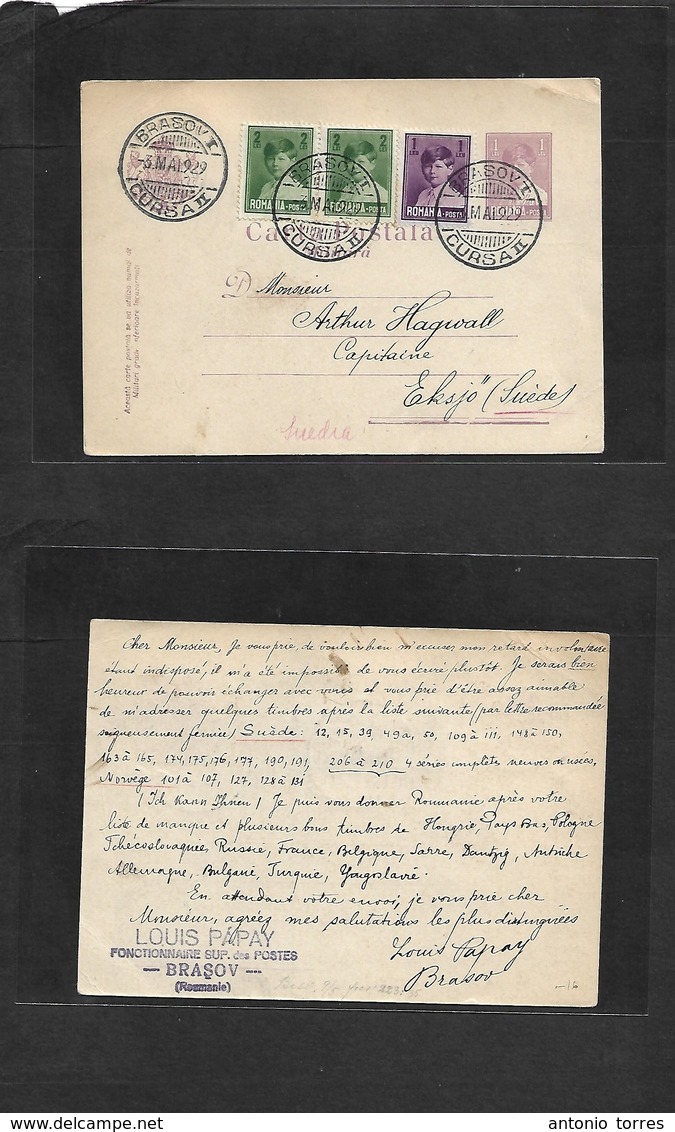 BRASOV I
3.MAI.929
CURSA II
2 LEI 2 LEI
ROMANIA-POSTA
2 LEI 2 LEI
ROMANIA-POSTA
1 LEU 1 LEU
ROMANIA-POSTA
1 LEU 1 LEU
ROMANIA-POSTA
BRASOV I
MAI.929
CURSA II
BRASOV I
MAI.929
CURSA II
Postala
Această carte postala se va utiliza numai de
Militari grade inferioare încazarmate
D Monsieur
Arthur Hagwall
Capitaine
Eksjö (Suède)
Suedia
Cher Monsieur, Je vous prie, de vouloir bien m'excuser mon retard involontaire
étant indisposé, il m'a été impossible de vous écrire plustôt. Je serais bien
heureux de pouvoir échanger avec vous et vous prie d'être assez aimable
de m'adresser quelques timbres après la liste suivante (par lettre recommandée
soigneusement fermée) Suède: 12, 15, 39, 49a, 50, 109 à 111, 148 à 150,
163 à 165, 174, 175, 176, 177, 190, 191, 206 à 210 4 séries complètes neuves ou usées,
Norvège 101 à 107, 127, 128 à 131
(Ich kann Ihnen) Je puis vous donner Roumanie après votre
liste de manque et plusieurs bons timbres de Hongrie, Pays Bas, Pologne
Tchécoslovaquie, Russie, France, Belgique, Sarre, Dantzig, Autriche
Allemagne, Bulgarie, Turquie, Yougoslavie.
En attendant votre envoi, je vous prie cher
Monsieur, agréez mes salutations les plus distinguées
LOUIS PAPAY
FONCTIONNAIRE SUP. des POSTES
— BRAȘOV —
(Roumanie)
Louis Papay
Brasov
antonio torres